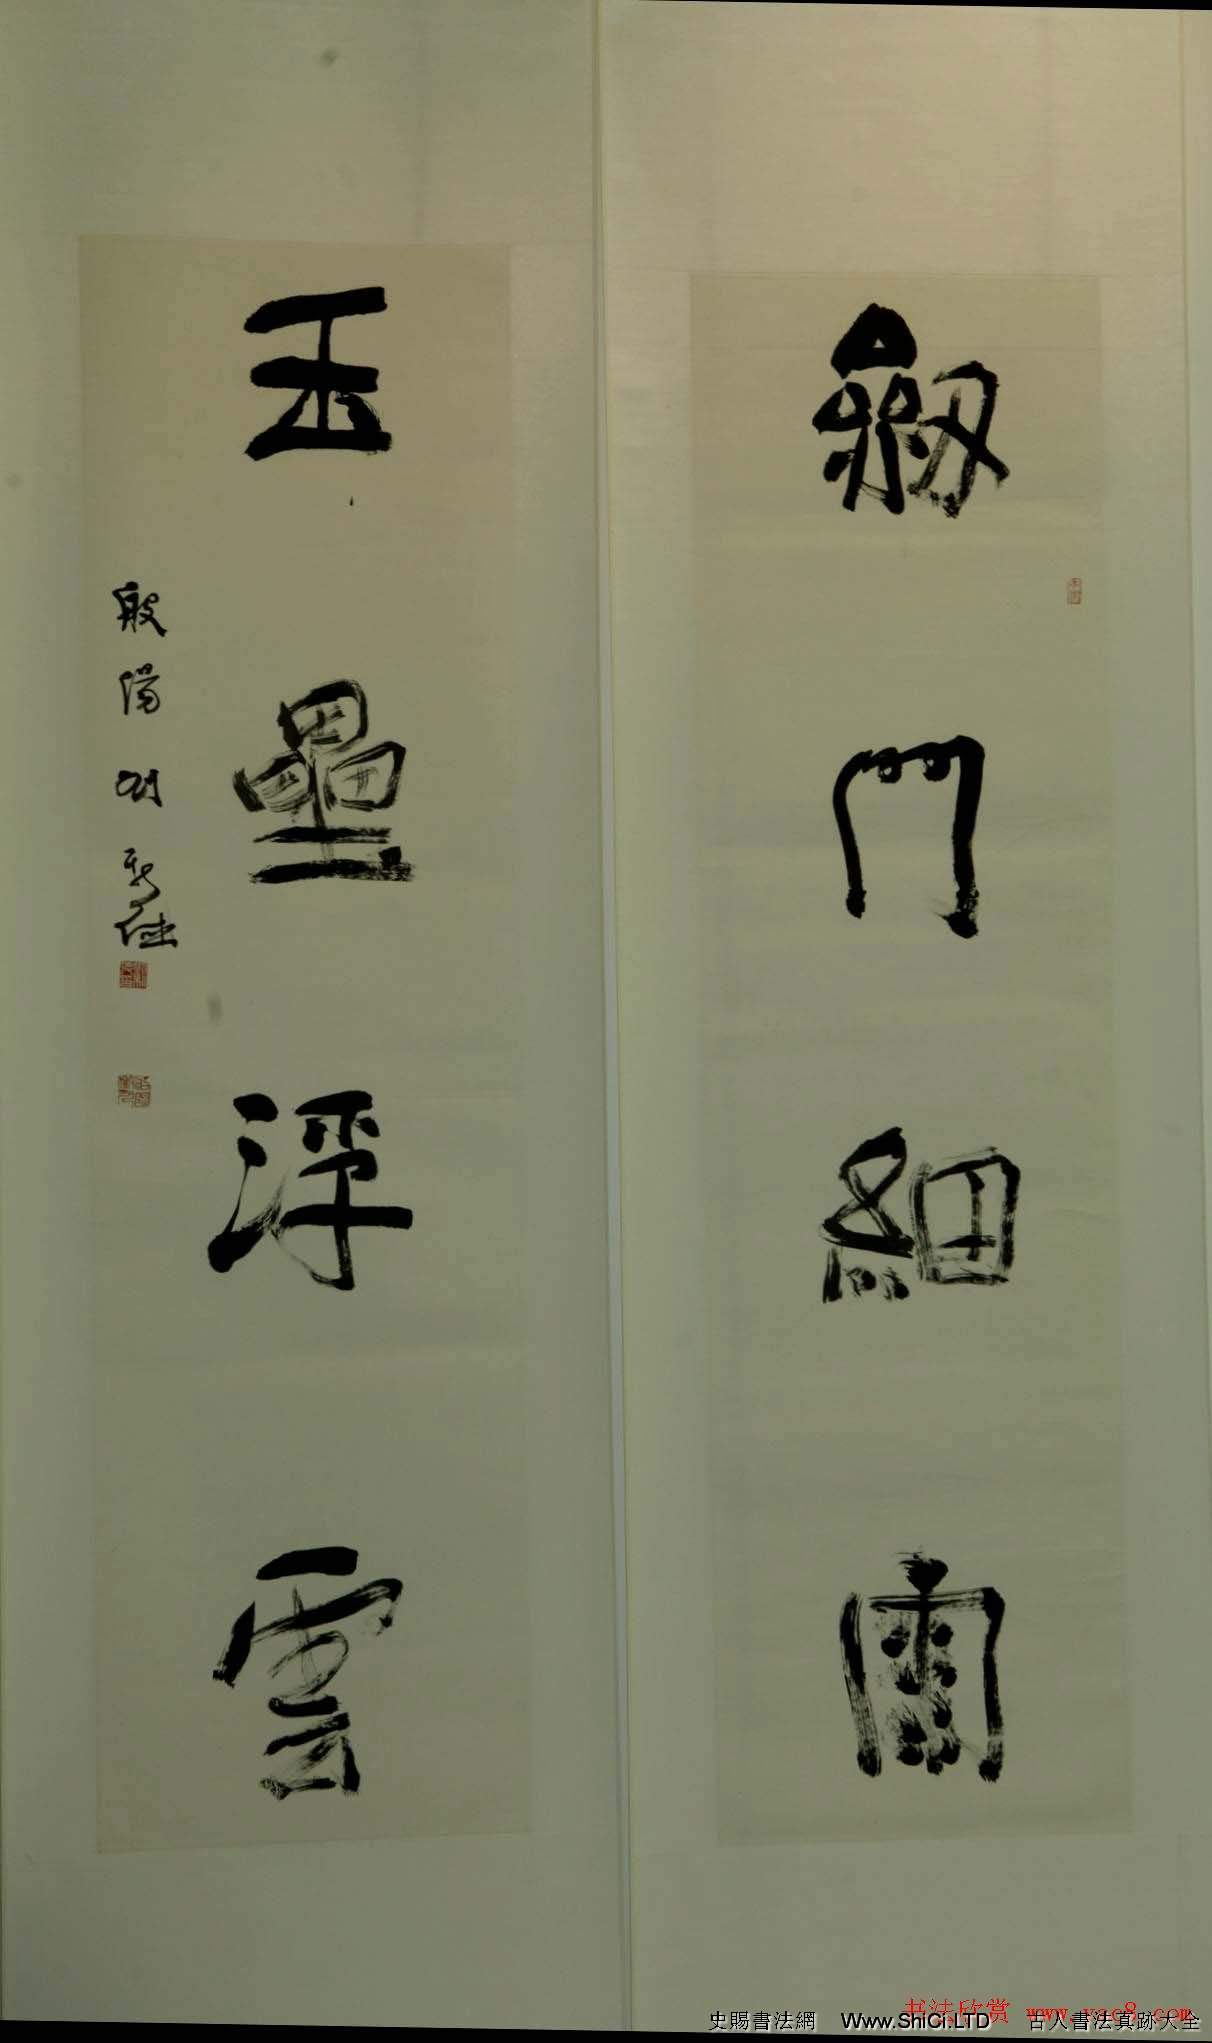 劒門細雨
玉壘浮雲
般陽
书法欣赏 www.yac8.com
史賜書法網 Www.ShiCi.LTD 古人書法真跡大全